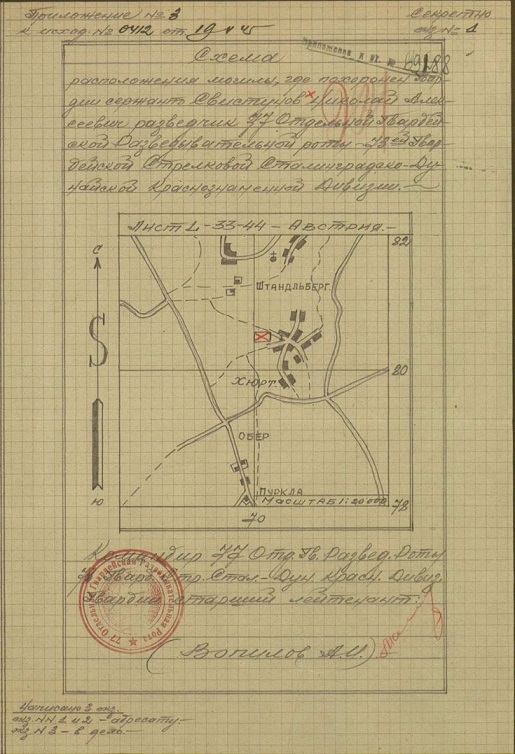 Приложение № 3
к исход. № 0412 от 19 V 45
Секретно
экз. № 1
Приложение к вх. №
Схема
расположения могилы, где похоронен гвар-
дии сержант Свистунов Николай Алек-
сеевич разведчик 77 Отдельной Гвардей-
ской Разведывательной роты 73ей Гвар-
дейской Стрелковой Сталинградско-Ду-
найской Краснознаменной Дивизии.
Лист L-33-44 - Австрия.
С
82
ШТАНДЛЬБЕРГ
80
ХЮРТ
ОБЕР
ПУРКЛА
Масштаб 1:20 000
78
Ю
70
Командир 77 Отд. Гв. Развед. Роты
Гвард. Стр. Стал-Дун. Красн. Дивиз.
Гвардии старший лейтенант:
77 Отдельная Гвардейская Разведывательная Рота
(Вопилов А.И.)
Написано 3 экз.
экз. NN 1 и 2 - адресату
экз N 3 - в дело.